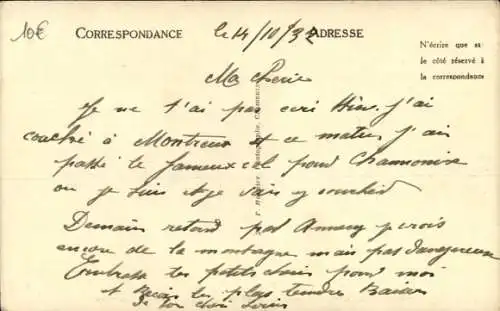 10€
CORRESPONDANCE
le 14/10/32
ADRESSE
N'écrire que sur
le côté réservé à
la correspondance
Ma Cherie
Je ne t'ai pas ecri Hier. j'ai
couché à Montreux et ce matin j'ai
passé le fameux col pour Chamonix
ou je suis et je vais y couché
Demain retour par Annecy je crois
encore de la montagne mais pas dangereuse
Embrasse tes petits pour moi
et Recois les plus tendres Baisers
de ton cheri Louis